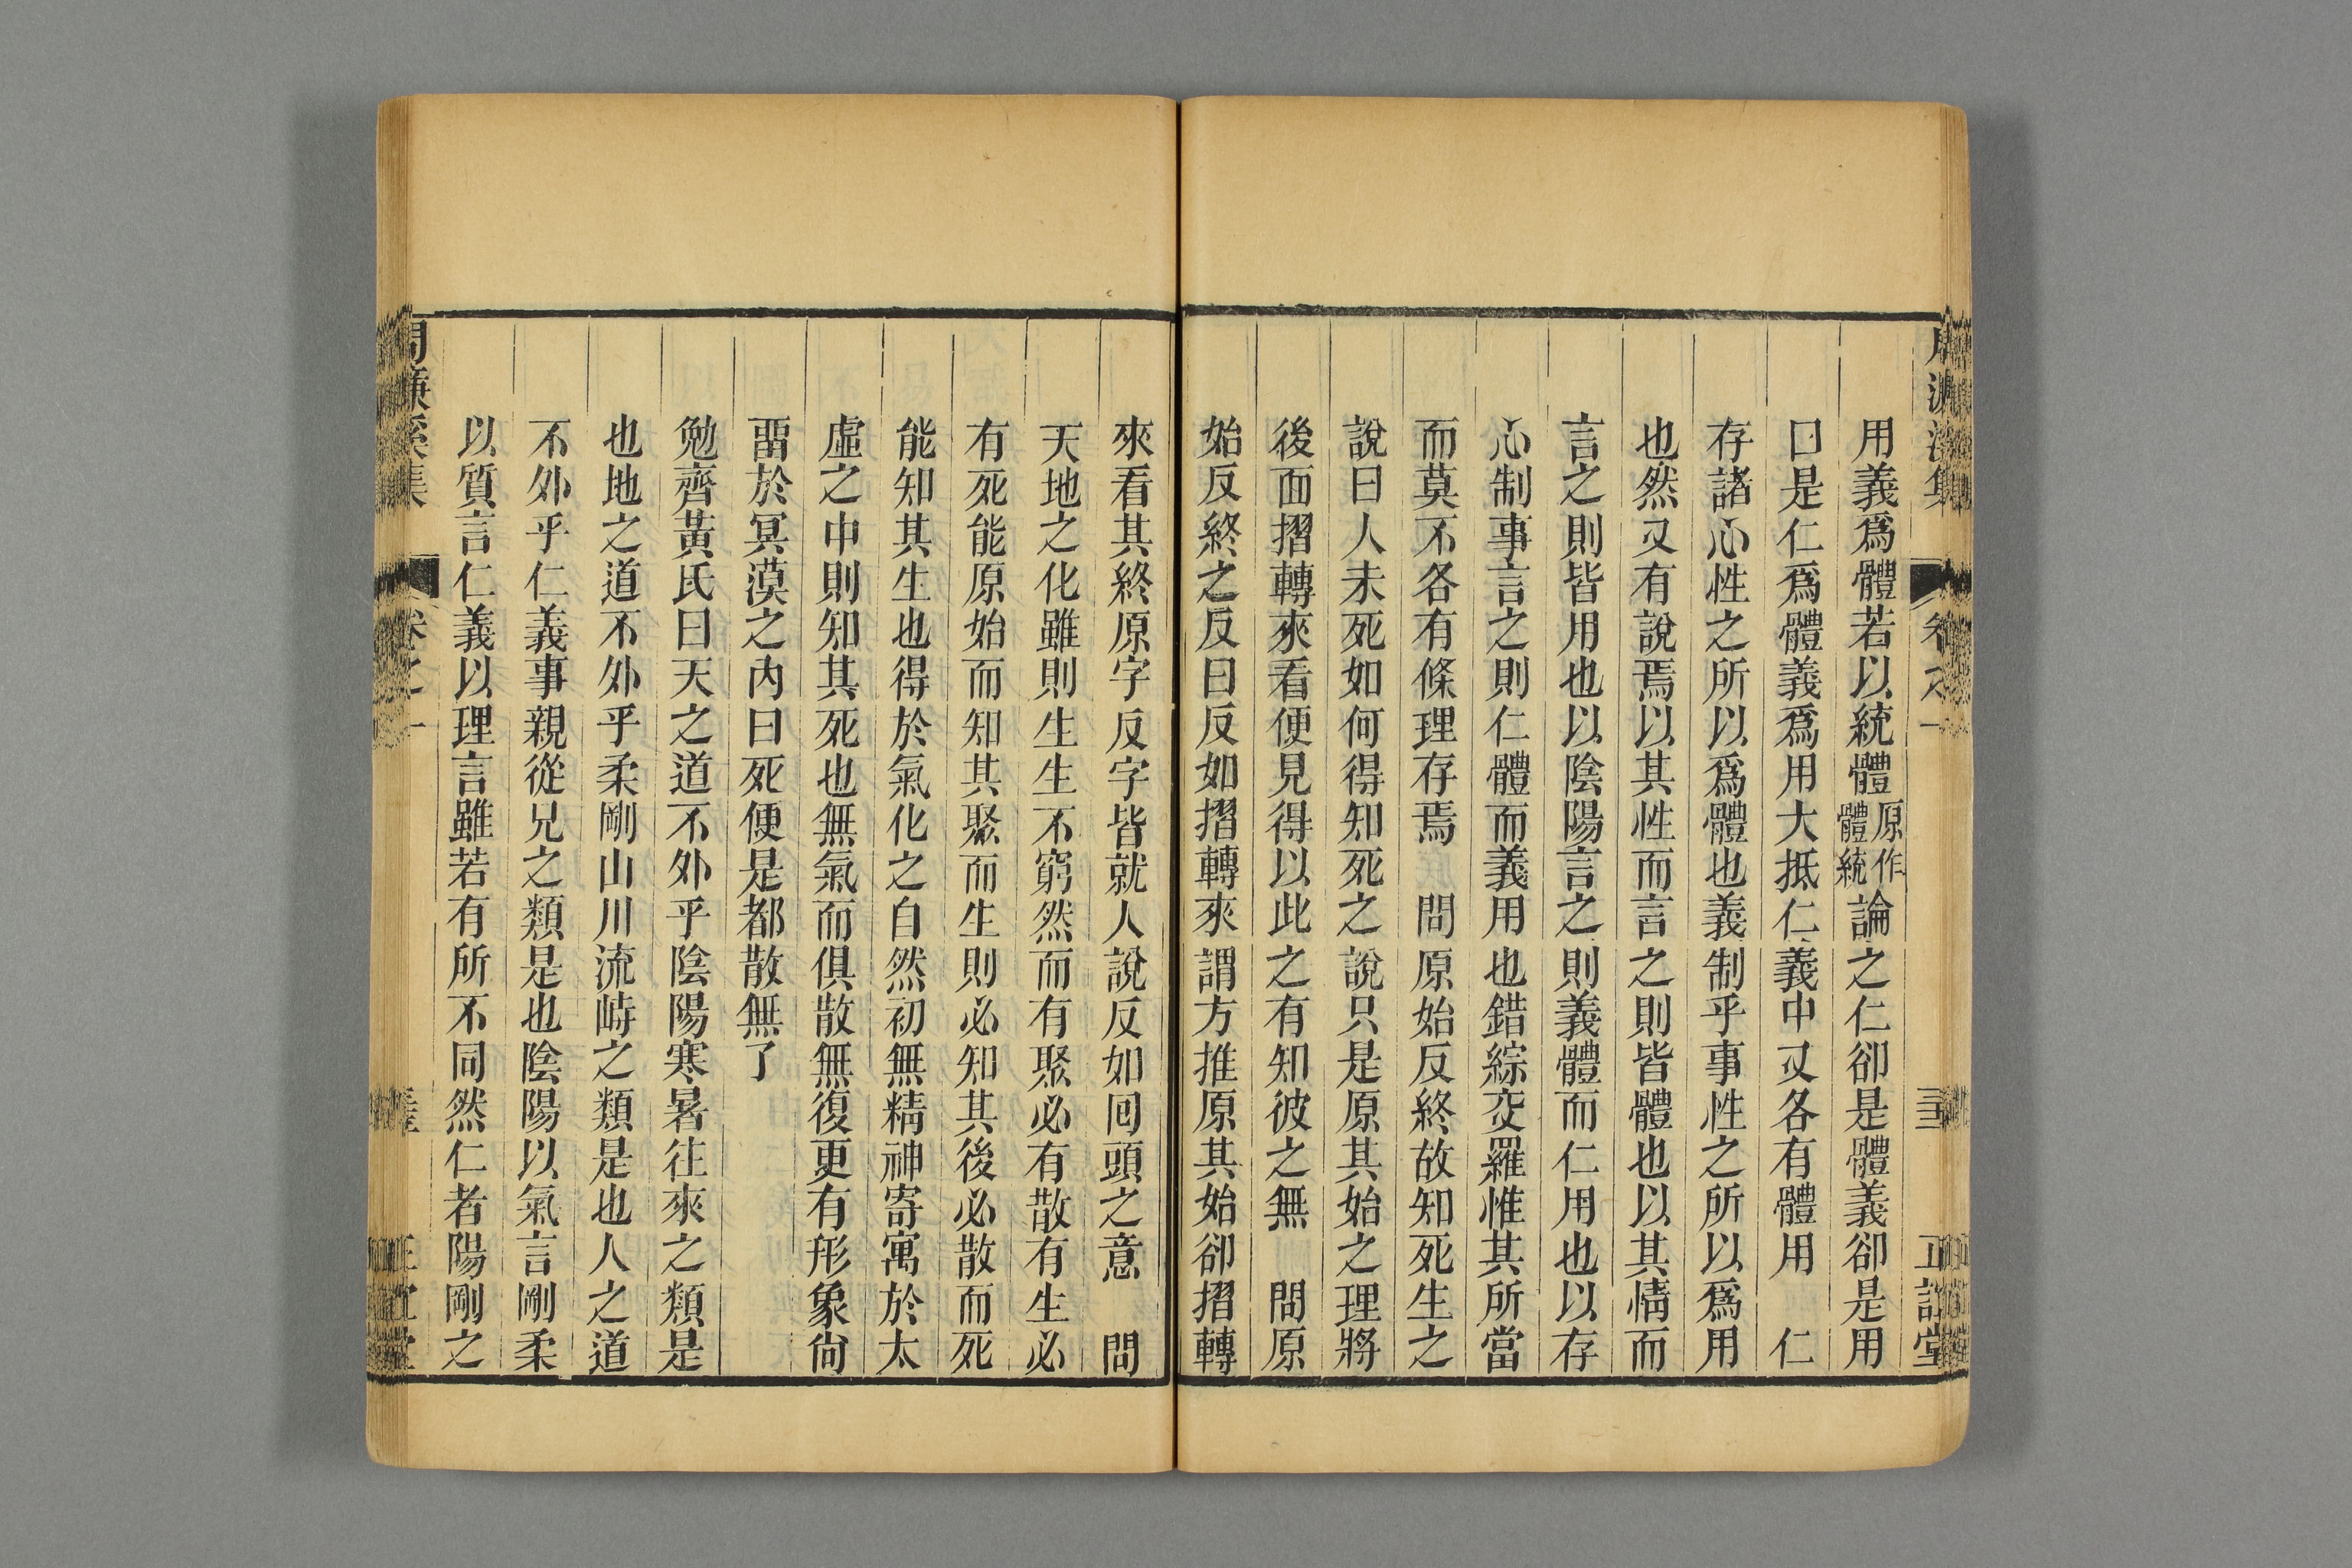 用義爲體若以統體原作體統論之仁卻是體義卻是用
曰是仁爲體義爲用大抵仁義中又各有體用　仁
存諸心性之所以爲體也義制乎事性之所以爲用
也然又有說焉以其性而言之則皆體也以其情而
言之則皆用也以陰陽言之則義體而仁用也以存
心制事言之則仁體而義用也錯綜交羅惟其所當
而莫不各有條理存焉　問原始反終故知死生之
說曰人未死如何得知死之說只是原其始之理將
後面摺轉來看便見得以此之有知彼之無　問原
始反終之反曰反如摺轉來謂方推原其始卻摺轉
來看其終原字反字皆就人說反如囘頭之意　問
天地之化雖則生生不窮然而有聚必有散有生必
有死能原始而知其聚而生則必知其後必散而死
能知其生也得於氣化之自然初無精神寄寓於太
虛之中則知其死也無氣而俱散無復更有形象尙
畱於冥漠之內曰死便是都散無了
勉齊黃氏曰天之道不外乎陰陽寒暑往來之類是
也地之道不外乎柔剛山川流峙之類是也人之道
不外乎仁義事親從兄之類是也陰陽以氣言剛柔
以質言仁義以理言雖若有所不同然仁者陽剛之
周濂溪集
卷之一